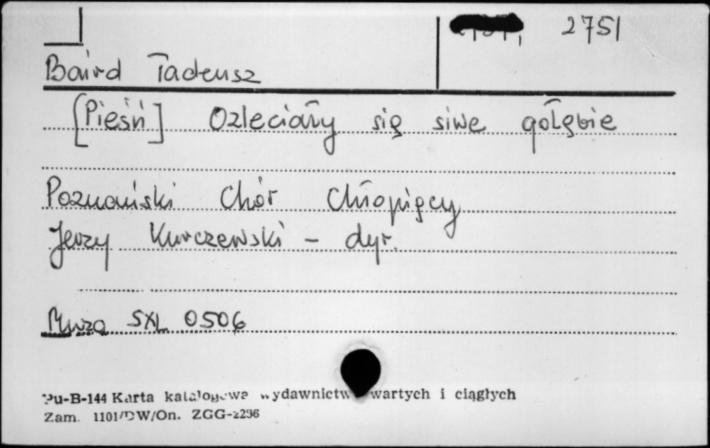 2751
Baird Tadeusz
[Pieśń] Ozleciały się siwe gołębie
Poznański Chór Chłopięcy
Jerzy Kurczewski - dyr.
Muza SXL 0506
Pu-B-144 Karta katalogowa wydawnictw zwartych i ciągłych
Zam. 1101/DW/On. ZGG-2296